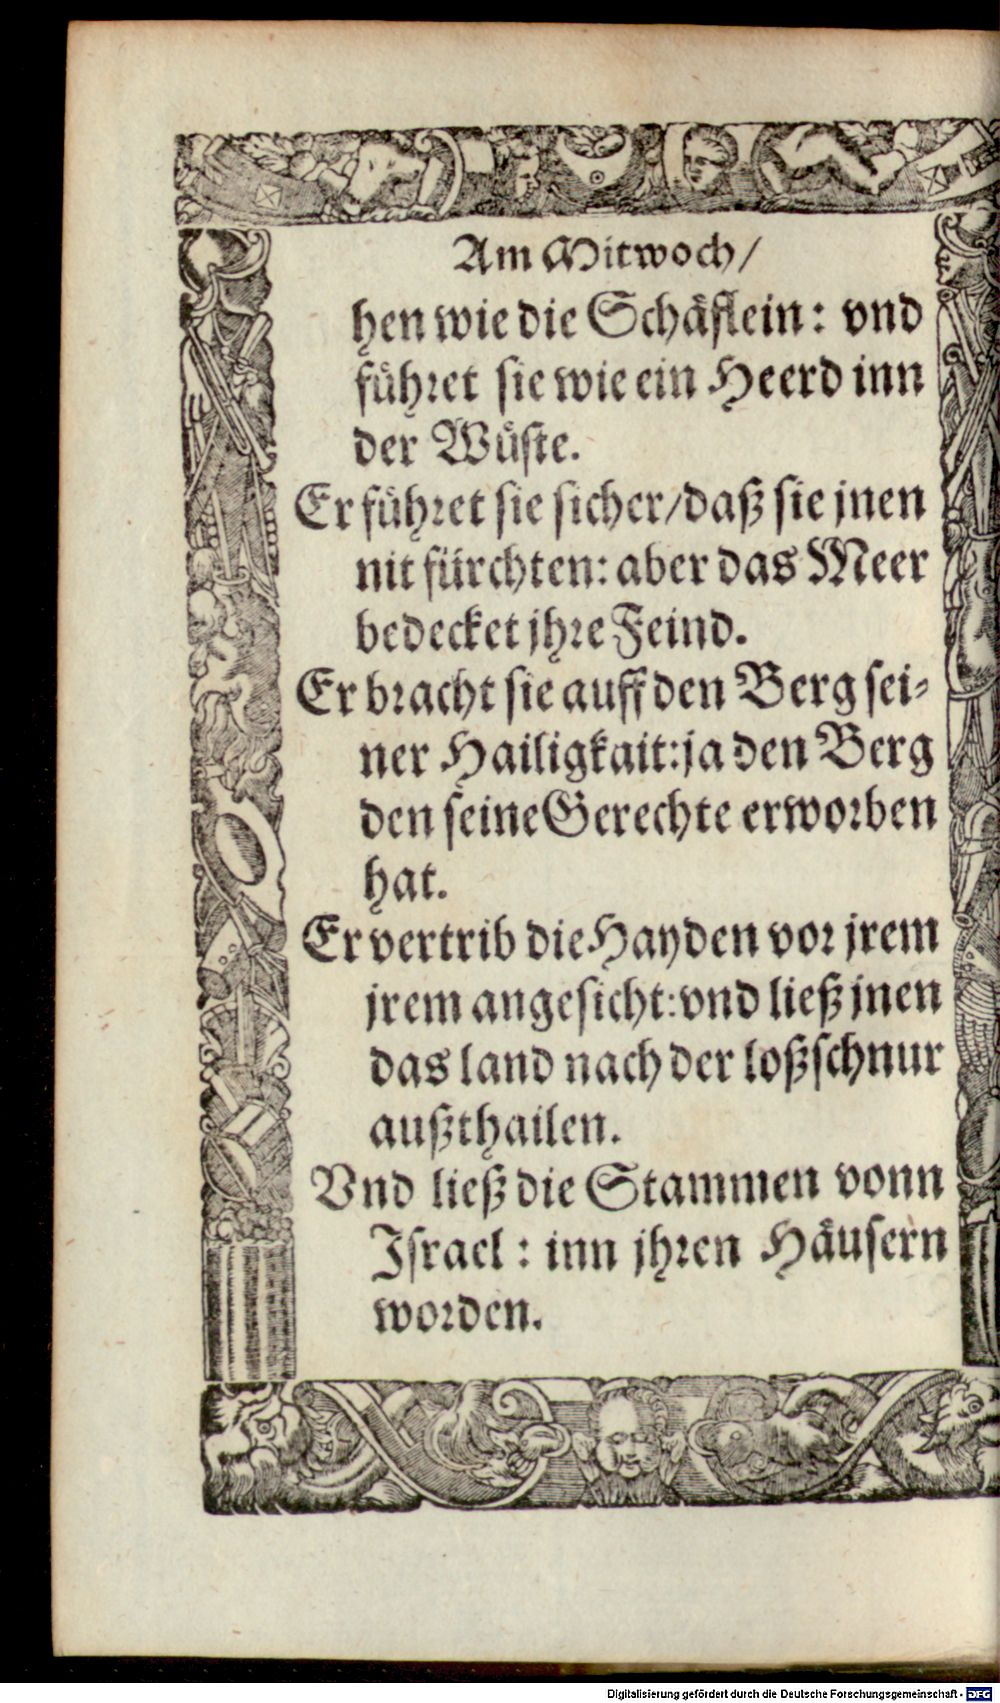 Am Mitwoch/
hen wie die Schäflein: vnd
führet sie wie ein Heerd inn
der Wüste.
Er führet sie sicher/daß sie jnen
nit fürchten: aber das Meer
bedecket jhre Feind.
Er bracht sie auff den Berg sei-
ner Hailigkait: ja den Berg
den seine Gerechte erworben
hat.
Er vertrib die Hayden vor jrem
jrem angesicht: vnd ließ jnen
das land nach der loßschnur
außthailen.
Vnd ließ die Stammen vonn
Israel: inn jhren Häusern
worden.
Digitalisierung gefördert durch die Deutsche Forschungsgemeinschaft - DFG